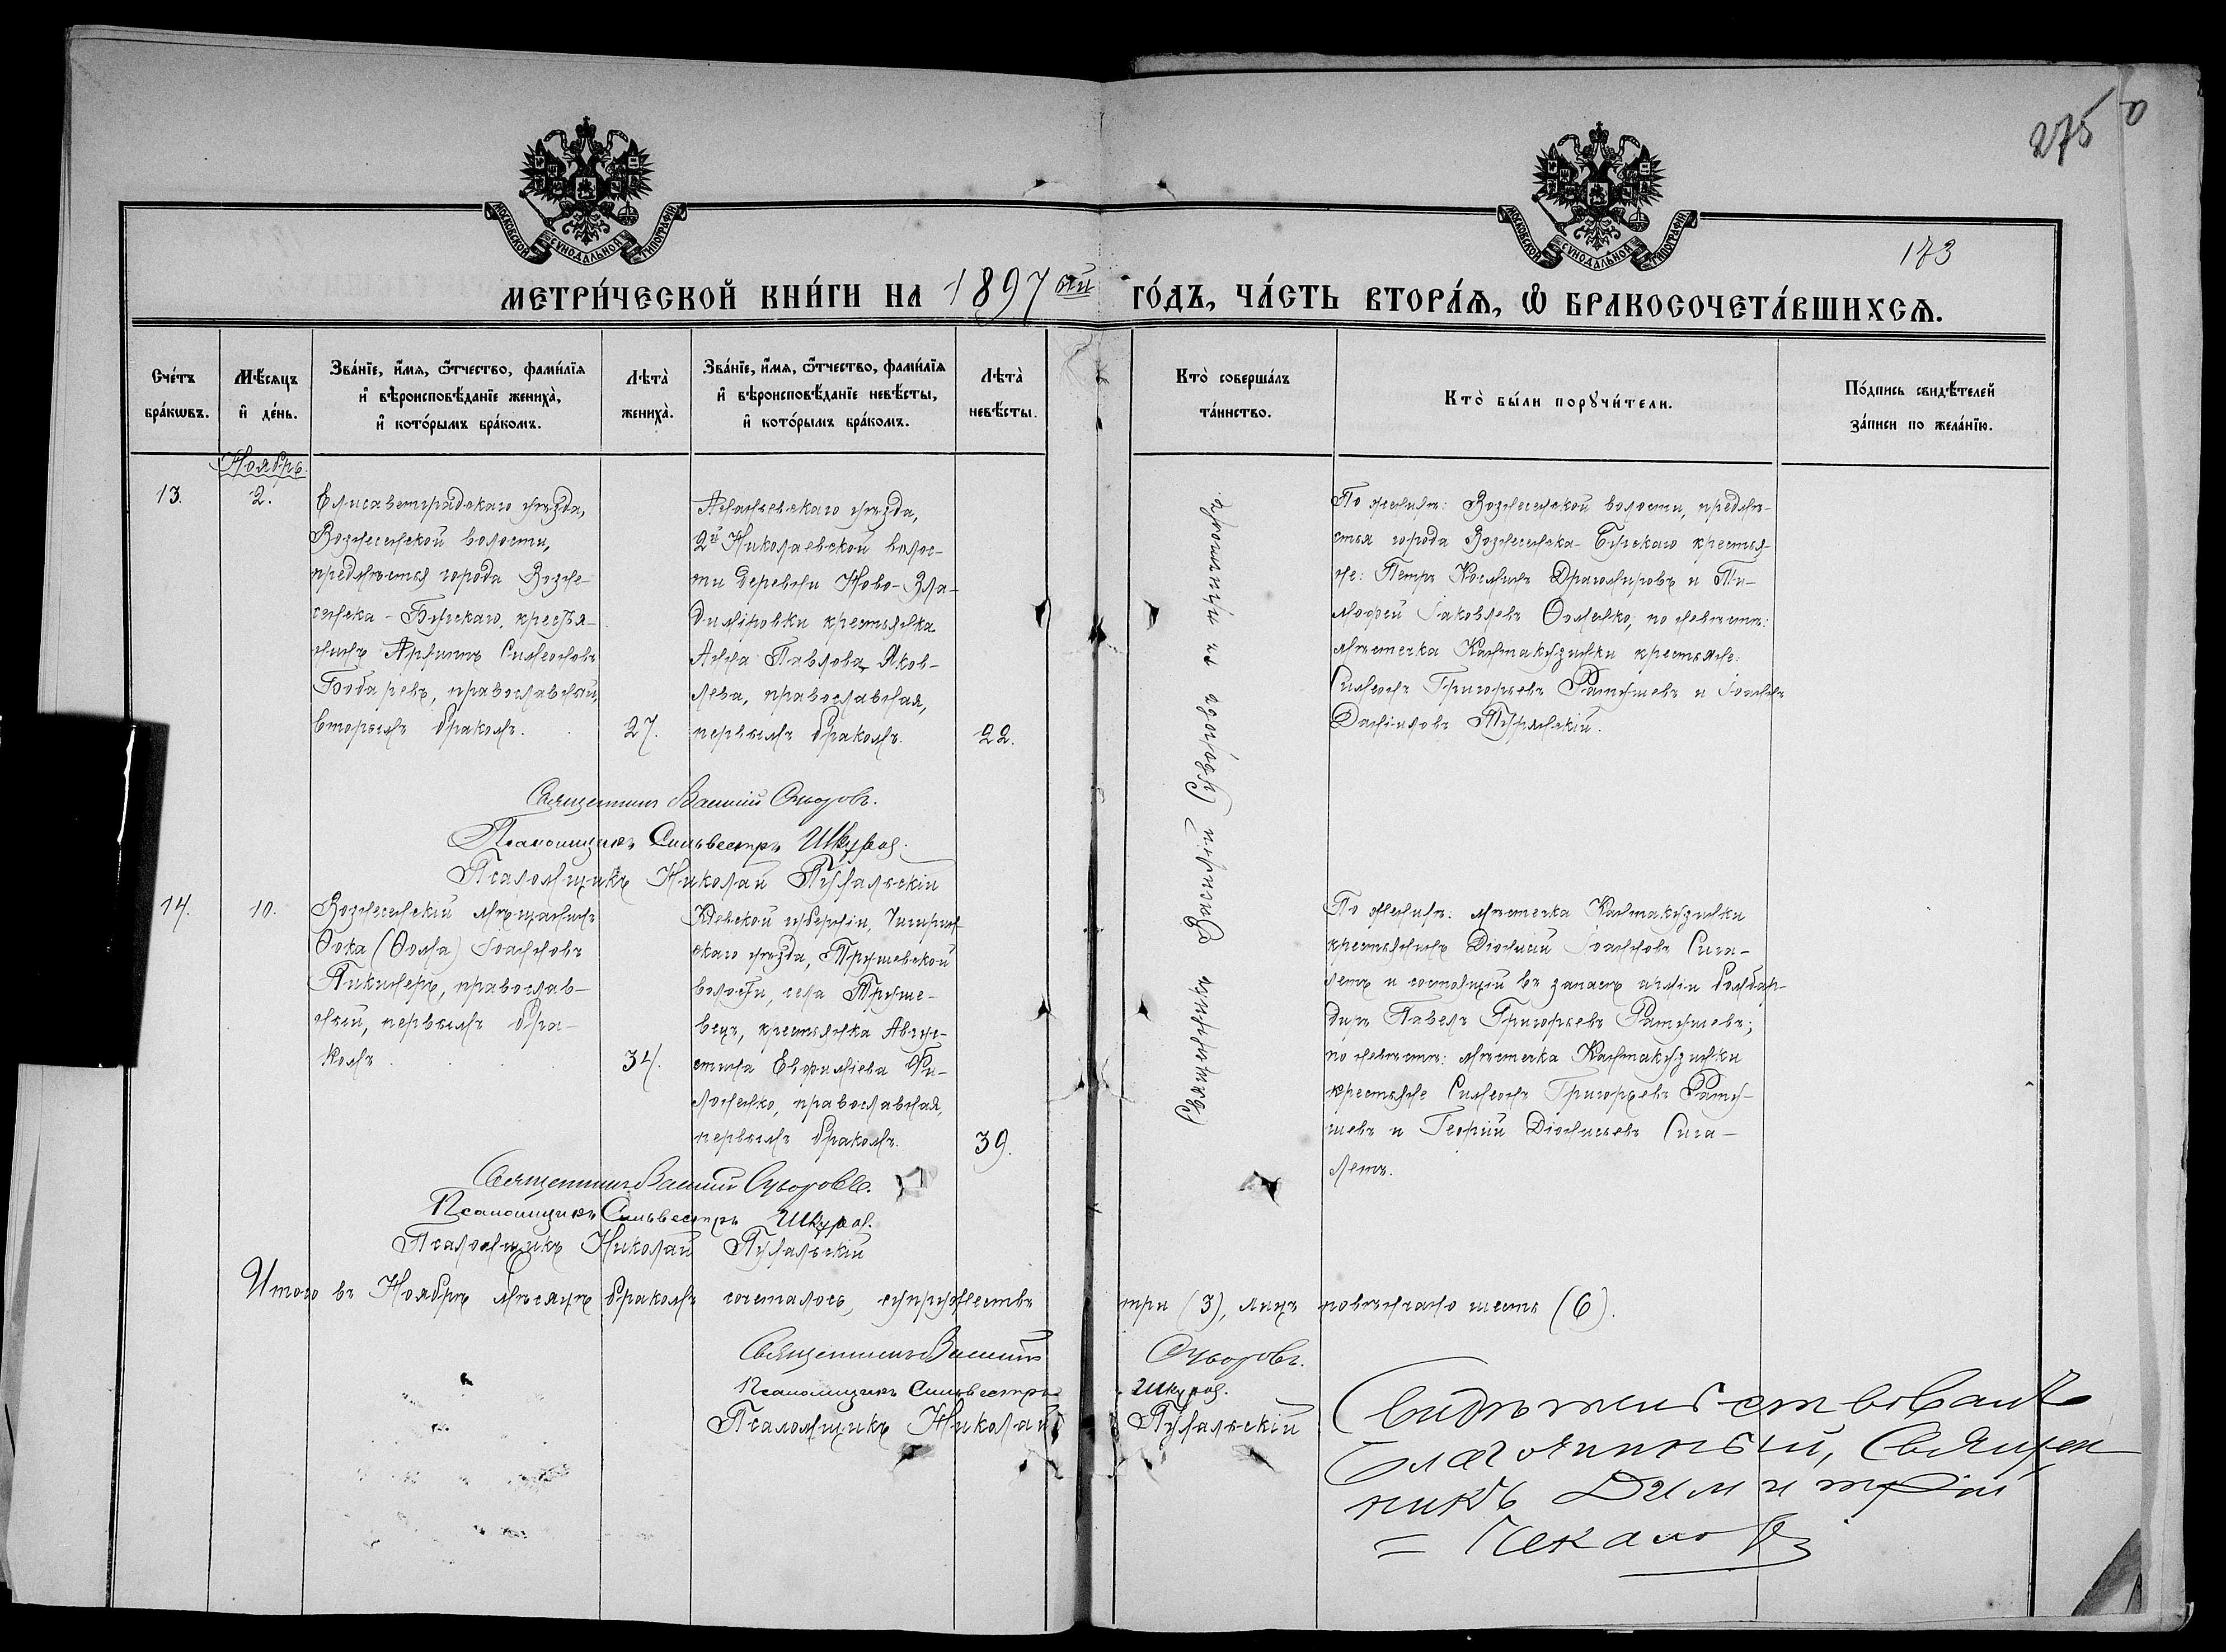 275
173
МОСКОВСКОЙ СѴНОДАЛЬНОЙ ТИПОГРАФІИ
МОСКОВСКОЙ СѴНОДАЛЬНОЙ ТИПОГРАФІИ
МЕТРИ́ЧЕСКОЙ КНИ́ГИ НА 1897 ый ГО́ДЪ, ЧА́СТЬ ВТОРА́Я, Ѡ БРАКОСОЧЕТА́ВШИХСЯ.
Сче́тъ
бра́кѡвъ.
Мѣ́сяцъ
и҆ де́нь.
Зва́нїе, и҆́мя, ѻ҆́тчество, фами́лїя
и҆ вѣроисповѣ́данїе жениха̀,
и҆ кото́рымъ бра́комъ.
Лѣта̀
жениха̀.
Зва́нїе, и҆́мя, ѻ҆́тчество, фами́лїя
и҆ вѣроисповѣ́данїе невѣ́сты,
и҆ кото́рымъ бра́комъ.
Лѣта̀
невѣ́сты.
Кто̀ соверша́лъ
та́инство.
Кто̀ бы́ли порꙋчи́тели.
По́дпись свидѣ́телей
за́писи по жела́нїю.
Ноябрь.
13.
2.
Елисаветградскаго уѣзда,
Вознесенской волости,
предмѣстья города Возне-
сенска - Бугскаго, крестья-
нинъ Архиппъ Симеоновъ
Бобаревъ, православный,
вторымъ бракомъ.
27.
Ананьевскаго уѣзда,
2й Николаевской волос-
ти деревни Ново-Вла-
диміровки крестьянка
Анна Павлова Яков-
лева, православная,
первымъ бракомъ.
22.
По женихѣ: Вознесенской волости, предмѣ-
стья города Вознесенска-Бугскаго крестья-
не: Петръ Козминъ Драгомировъ и Ти-
моѳей Іаковлевъ Ѳоменко, по невѣстѣ:
мѣстечка Кантакузинки крестьяне:
Симеонъ Григорьевъ Ратушевъ и Іоаннъ
Даніиловъ
Священникъ Василій Суворовъ.
Псаломщикъ Сильвестръ Шкурас.
Псаломщикъ Николай
14.
10.
Вознесенскій мѣщанинъ
Ѳока (Ѳома) Іоанновъ
Пикинеръ, православ-
ный, первымъ бра-
комъ
34.
Кіевской губерніи, Чигирин-
скаго уѣзда, Трушевской
волости, села Труше-
вецъ, крестьянка Авгу-
стина Евфиміева Фи-
моненко, православная,
первымъ бракомъ.
39.
По женихѣ: мѣстечка Кантакузинки
крестьянинъ Діонисій Іоанновъ Сига-
летъ и состоящій въ запасѣ арміи бомбар-
диръ Павелъ Григорьевъ Ратушевъ;
по невѣстѣ: мѣстечка Кантакузинки
крестьяне Симеонъ Григорьевъ Рату-
шевъ и Георгій Діонисьевъ Сига-
летъ.
Священникъ Василій Суворовъ съ причтомъ.
Священникъ Василій Суворовъ.
Псаломщикъ Сильвестръ Шкурас.
Псаломщикъ Николай
Итого въ Ноябрѣ мѣсяцѣ бракомъ сочеталось, супружествъ три (3), лицъ повѣнчано шесть (6).
Священникъ Василій Суворовъ.
Псаломщикъ Сильвестръ Шкурас.
Псаломщикъ Николай
Свидѣтельствовалъ
Благочинный, Священ
никъ Димитрій
=Чекановъ